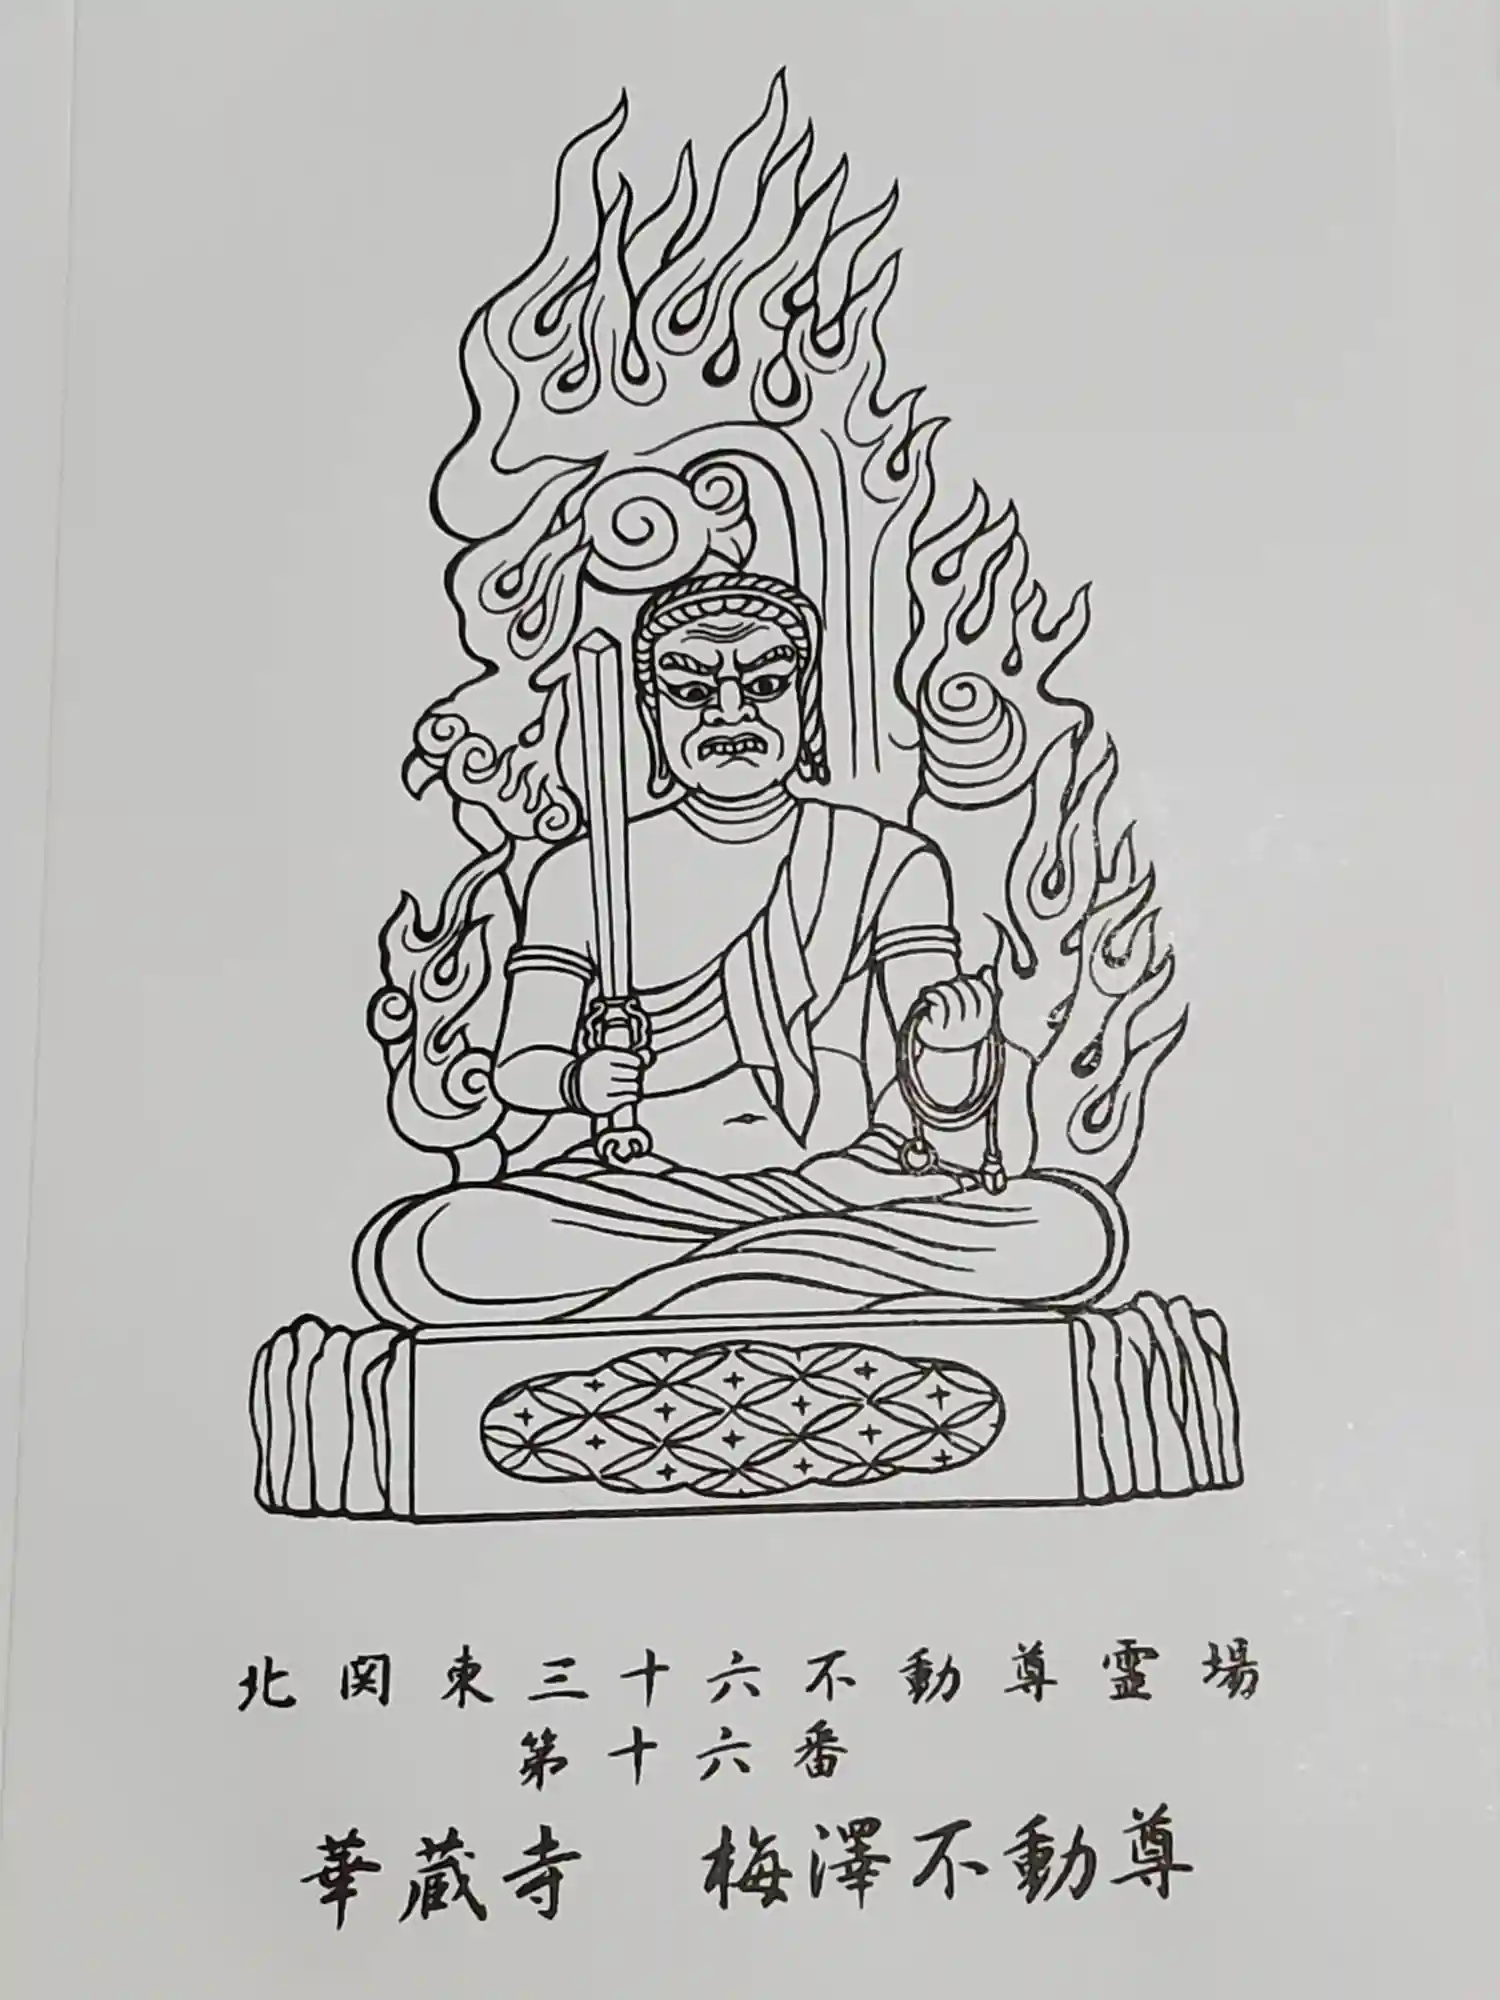 北関東三十六不動尊霊場
第十六番
華蔵寺　梅澤不動尊